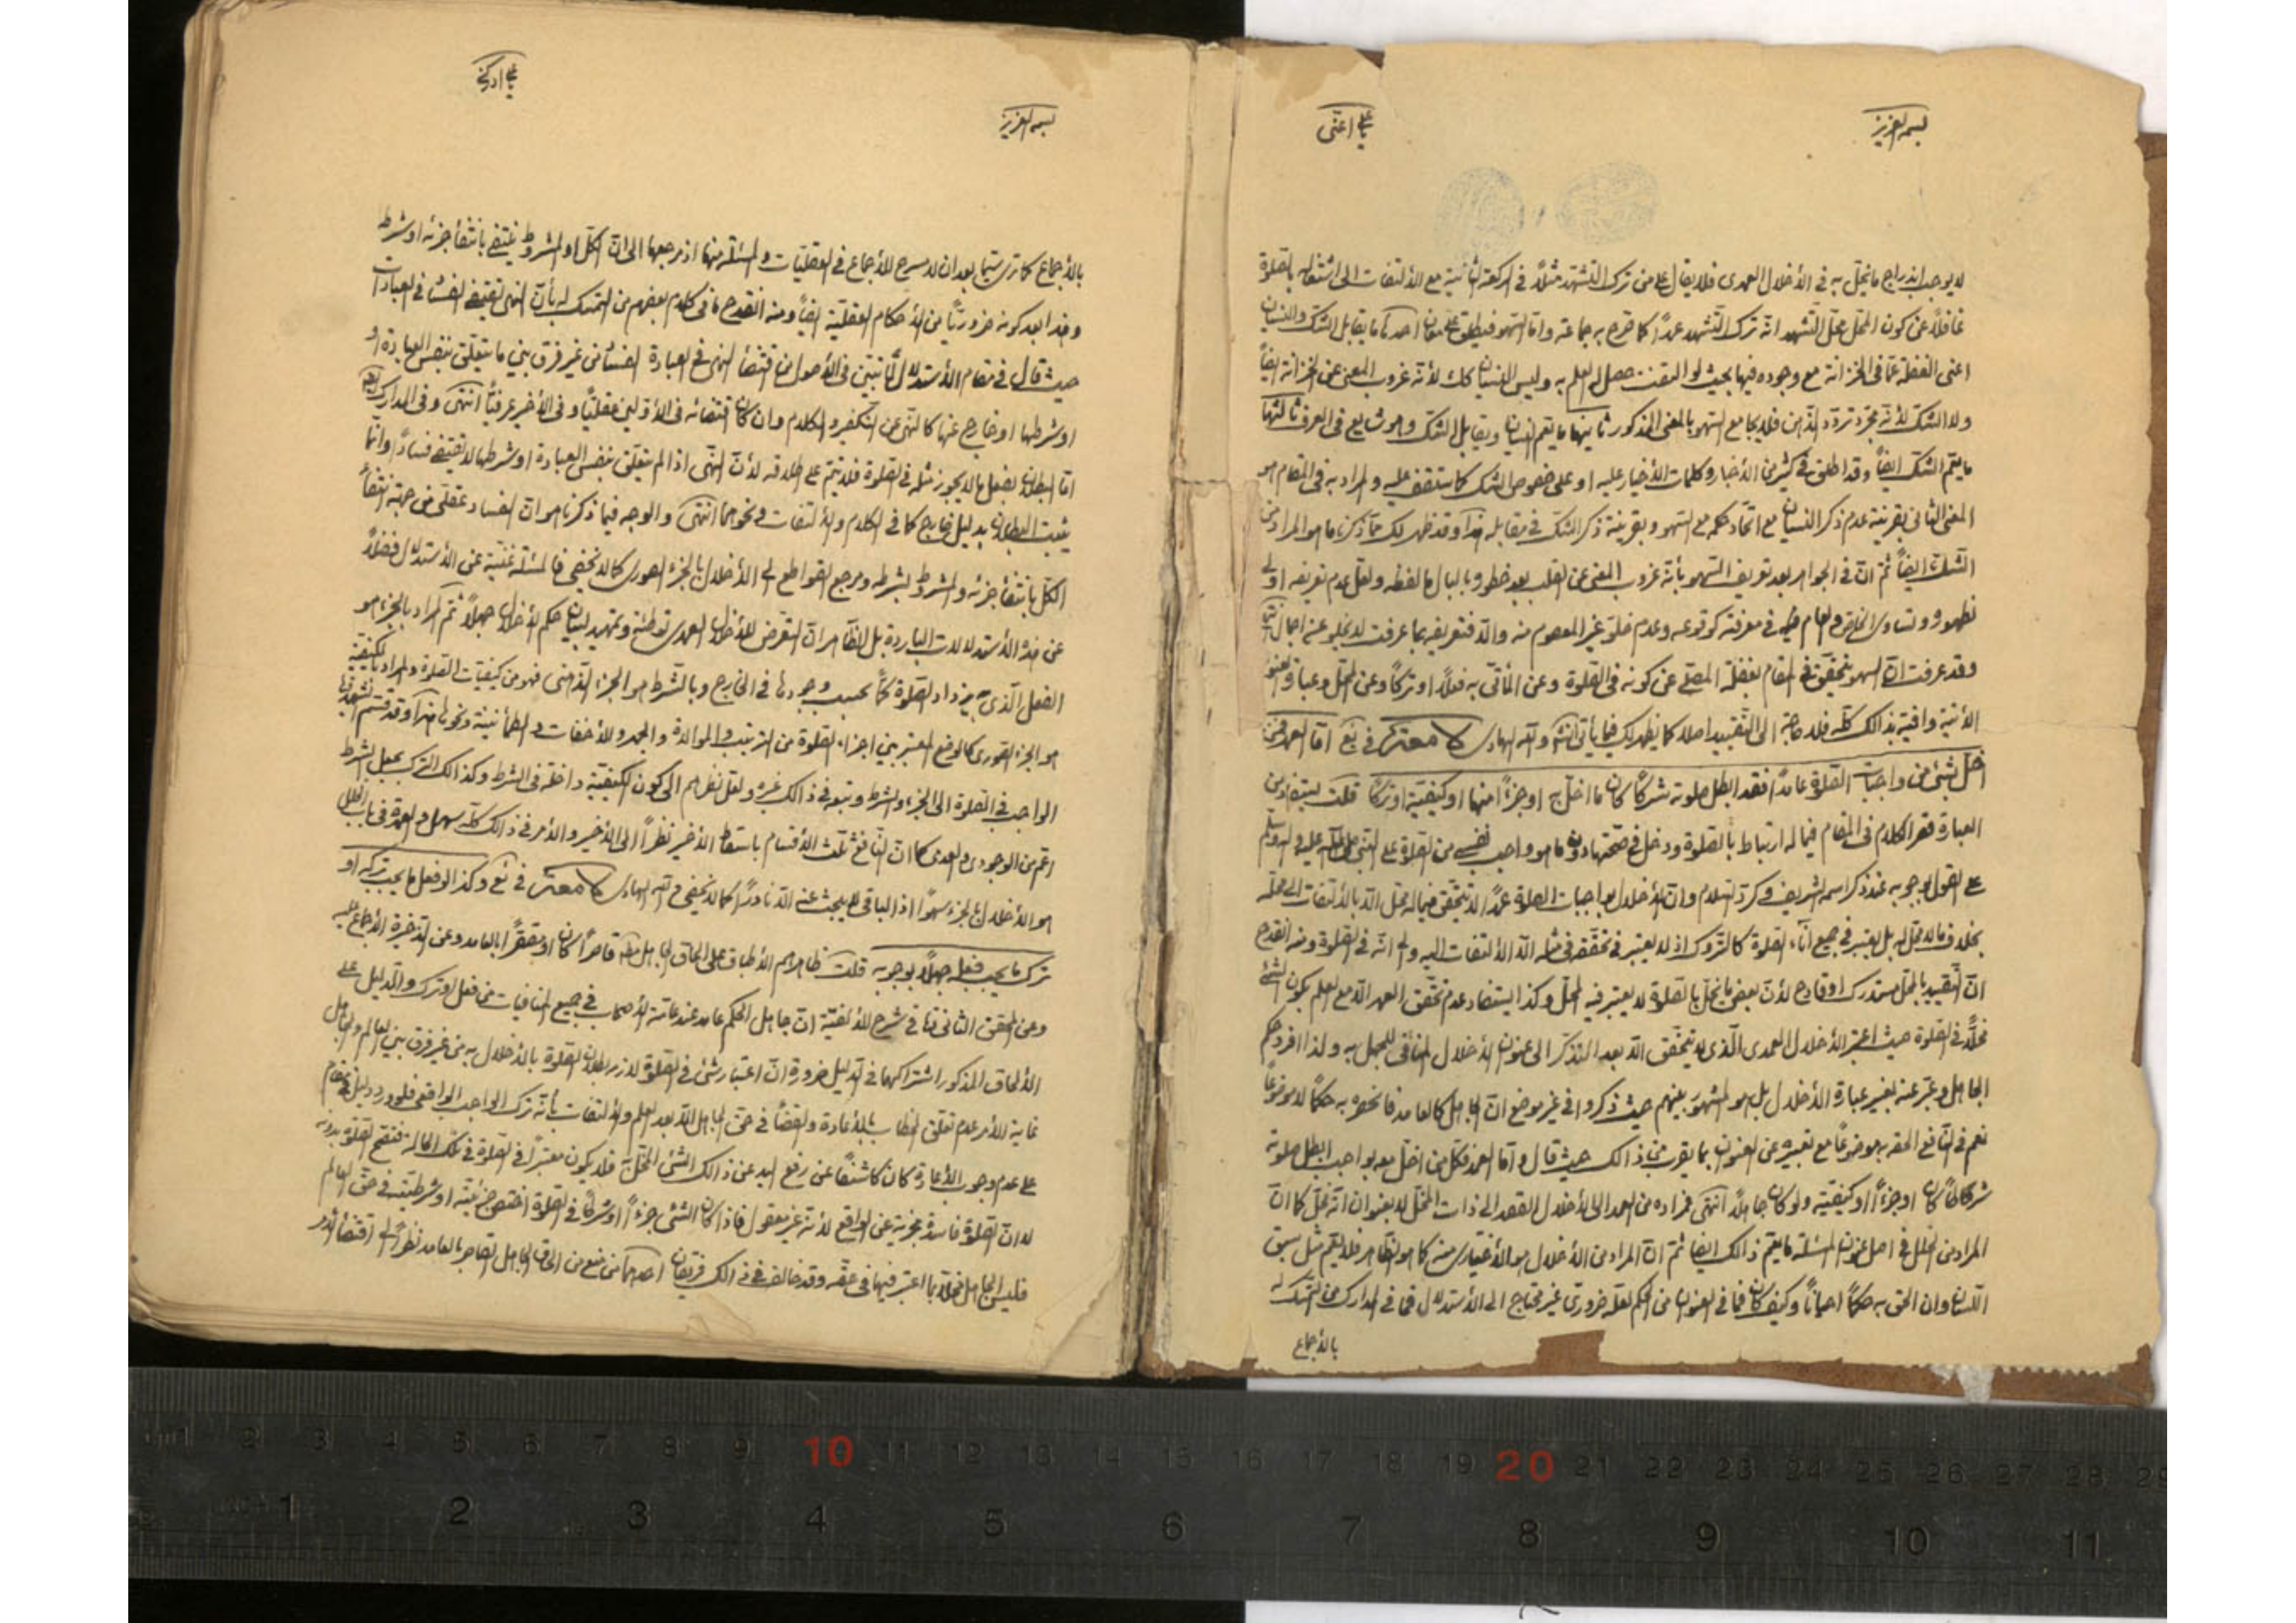 بسمه العزيز
يا علي اغثنى
لا يوجب اندراج ما يخل به فى الأخلال العمدى فلا يقال على من ترك التشهد مثلاً فى الركعة الثانية مع الألتفات الى اشتغاله بالصلوة
غافلاً عن كون المحل محل التشهد انه ترك التشهد عمداً كما صرح به جماعة واما السهو فيطلق على معان احدها ما يقابل الشك والنسيان
اعنى الغفلة عما فى الخزانة مع وجوده فيها بحيث لو التفت حصل له العلم به وليس النسيان كك لأنه عزوب المعنى عن الخزانة ايضاً
ولا الشك لأنه مجرد تردد الذهن فلا يجامع السهو بالمعنى المذكور ثانيها ما يعم النسيان ويقابل الشك وهو شايع فى العرف ثالثها
ما يعم الشك ايضاً وقد اطلق فى كثير من الأخبار وكلمات الأخيار عليه او على خصوص الشك كما ستقف عليه والمراد به فى المقام هو
المعنى الثانى بقرينة عدم ذكر النسيان مع اتحاد حكمه مع السهو وبقرينة ذكر الشك فى مقابله هذا وقد ظهر لك مما ذكرنا ما هو المراد من
الشك ايضاً ثم ان فى الجواهر بعد تعريف السهو بأنه عزوب المعنى عن القلب بعد خطوره بالبال ما لفظه ولعل عدم تعريفه اولى
لظهوره وتساوى الخاص والعام فى معرفته كوقوعه وعدم خلو غير المعصوم منه والا فتعريفه بما عرفت لا يخلو عنه اجمال
وقد عرفت ان السهو يتحقق فى المقام بغفلة المصلى عن كونه فى الصلوة وعن المأتى به فعلاً او تركاً وعن المحل وعبارة العنوان
الأتية وافية بذالك كله فلا حاجة الى التقييد اصلا كما يظهر لك فيما يأتى انشاء الله والله الهادى كلامعتر فى يع اما العمد فمن
اخل بشئ من واجبات الصلوة عامداً فقد ابطل صلوته شرطاً كان ما اخل به او جزءً منها او كيفية او تركاً قلت يستفاد من
العبارة قصر الكلام فى المقام فيما له ارتباط بالصلوة ودخل فى صحتها دون ما هو واجب نفسى من الصلوة على النبى صلى الله عليه واله وسلم
على القول بوجوبه عند ذكر اسمه الشريف وكرد السلام وان الأخلال بواجبات الصلوة عمداً لا يتحقق فيما له محل الا بالألتفات الى محله
بخلاف ما لا محل له بل يعتبر فى جميع آناء الصلوة كالتروك اذ لا يعتبر فى تحققه فى مثله الا الألتفات اليه والى انه فى الصلوة ومنه انقدح
ان التقييد بالمحل مستدرك او قادح لأن بعض ما يخل بالصلوة لا يعتبر فيه المحل وكذا يستفاد عدم تحقق العمد الا مع العلم بكون الشئ
مخلاً فى الصلوة حيث اعتبر الأخلال العمدى الذى لا يتحقق الا بعد التذكر الى عنوان الأخلال المنافى للجهل به ولذا افرد حكم
الجاهل وعبر عنه بغير عبارة الأخلال بل هو المشهور بينهم حيث ذكروا فى غير موضع ان الجاهل كالعامد فالحقوه به حكماً لا موضوعاً
نعم فى النافع الحقه به موضوعاً مع تعبيره عن العنوان بما يقرب من ذالك حيث قال واما العمد فكل من اخل معه بواجب ابطل صلوته
شرطاً كان او جزءاً او كيفية ولو كان جاهلاً انتهى فمراده من العمد الى الأخلال القصد الى ذات المخل لا بعنوان انه مخل كما ان
المراد من الخلل فى اصل عنوان المسئلة ما يعم ذالك ايضا ثم ان المراد من الأخلال هو الأختيارى منه كما هو الظاهر فلا يعم مثل سبق
اللسان وان الحق به حكماً احياناً وكيف كان فما فى العنوان من الحكم لعله ضرورى غير محتاج الى الأستدلال فما فى المدارك من التمسك له
بالأجماع
يا علي ادركنى
بسمه العزيز
بالأجماع كما ترى سيما بعد ان لا مسرح للأجماع فى العقليات والمسئلة منها اذ مرجعها الى ان الكل او المشروط ينتفى بانتفاء جزئه او شرطه
وهذا بعد كونه ضرورياً من الأحكام العقلية ايضاً ومنه انقدح ما فى كلام بعضهم من التمسك له بأن النهى يقتضى الفساد فى العبادات
حيث قال فى مقام الأستدلال لما تبين فى الأصول من اقتضاء النهى فى العبادة الفساد من غير فرق بين ما يتعلق بنفس العبادة او
او شرطها او خارج عنها كالنهى عن التكفير والكلام وان كان اقتضائه فى الأولين عقلياً وفى الأخير عرفياً انتهى وفى المدارك
اما البطلان بفعل ما لا يجوز مثله فى الصلوة فلا يتم على اطلاقه لأن النهى اذا لم يتعلق بنفس العبادة او شرطها لا يقتضى فساداً وانما
يثبت البطلان بدليل خارج كما فى الكلام والألتفات ونحوهما انتهى والوجه فيما ذكرنا هو ان الفساد عقلى من جهة انتفاء
الكل بانتفاء جزئه والمشروط بشرطه ومرجع القواطع الى الأخلال بالجزء الصورى كما لا يخفى فالمسئلة غنية عن الأستدلال فضلاً
عن هذه الأستدلالات الباردة بل الظاهر ان التعرض للأخلال العمدى توطئة وتمهيد لبيان حكم الأخلال جهلاً ثم المراد بالجزء هو
الفعل الذى يزداد الصلوة كماً بحسب وجودها فى الخارج وبالشرط هو الجزء الذهنى فهو من كيفيات الصلوة والمراد بالكيفية
هو الجزء الصورى كالوضع المعتبر بين اجزاء الصلوة من الترتيب والموالاة والجهر والأخفات والطمأنينة ونحوها هذا وقد قسم الشهيد
الواجب فى الصلوة الى الجزء والشرط وتبعه فى ذالك غيره ولعل نظرهم الى كون الكيفية داخلة فى الشرط وكذا لك الترك بجعل الشرط
اعم من الوجودى والعدمى كما ان النافع ثلث الأقسام باسقاط الأخير نظراً الى الأخير والأمر فى ذالك كله سهل والعمدة فى باب الخلل
هو الأخلال بالجزء سهواً اذ الباقى لا يبحث عنه الا نادراً كما لا يخفى والله الهادى كلامعتر فى يع وكذا لو فعل ما يجب تركه او
ترك ما يجب فعله جهلاً بوجوبه قلت ظاهرهم الأطباق على الحاق الجاهل قاصراً كان او مقصراً بالعامد وعن الذخيرة الأجماع عليه
وعن المحقق الثانى فى شرح الألفية ان جاهل الحكم عامد عند عامة الأصحاب فى جميع المنافيات من فعل او ترك والدليل على
الألحاق المذكور اشتراكهما فى الدليل ضرورة ان اعتبار شئ فى الصلوة لازمه بطلان الصلوة بالأخلال به من غير فرق بين العالم والجاهل
غاية الأمر عدم تعلق الخطاب بالأعادة والقضاء فى حق الجاهل الا بعد العلم والألتفات بأنه ترك الواجب الواقعى فلو ورد دليل فى مقام
على عدم وجوب الأعادة كان كاشفاً عن رفع اليد عن ذالك الشئ المختل فلا يكون معتبراً فى الصلوة فى تلك الحالة فتصح الصلوة بدونه
لا ان الصلوة فاسدة مجزية عن الواقع لأنه غير معقول فاذا كان الشئ جزءاً او شرطاً فى الصلوة اختص جزئيته او شرطيته فى حق العالم
فليس الجاهل مخلاً بما اعتبر فيها فى حقه وقد خالف فى ذالك فريقان احدهما من منع من الحاق الجاهل القاصر بالعامد نظراً الى اقتضاء الأمر